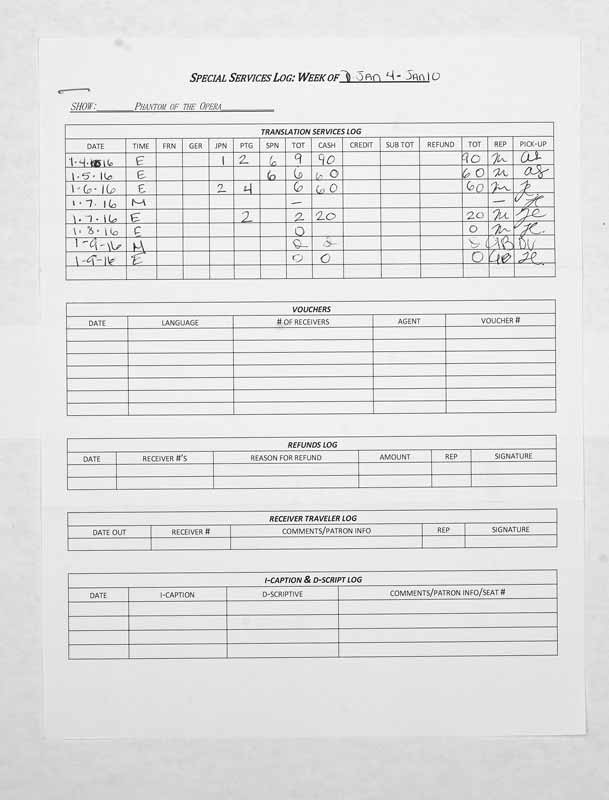 SPECIAL SERVICES LOG: WEEK OF JAN 4 - JAN 10
SHOW: PHANTOM OF THE OPERA
TRANSLATION SERVICES LOG
DATE TIME FRN GER JPN PTG SPN TOT CASH CREDIT SUB TOT REFUND TOT REP PICK-UP
1-4-16 E 1 2 6 9 90 90
1.5.16 E 6 6 60 60
1-6-16 E 2 4 6 60 60
1.7.16 M — —
1.7.16 E 2 2 20 20
1.8.16 E 0 0
1-9-16 M GB DV
1-9-16 E 0 0 0 GB
VOUCHERS
DATE LANGUAGE # OF RECEIVERS AGENT VOUCHER #
REFUNDS LOG
DATE RECEIVER #'S REASON FOR REFUND AMOUNT REP SIGNATURE
RECEIVER TRAVELER LOG
DATE OUT RECEIVER # COMMENTS/PATRON INFO REP SIGNATURE
I-CAPTION & D-SCRIPT LOG
DATE I-CAPTION D-SCRIPTIVE COMMENTS/PATRON INFO/SEAT #